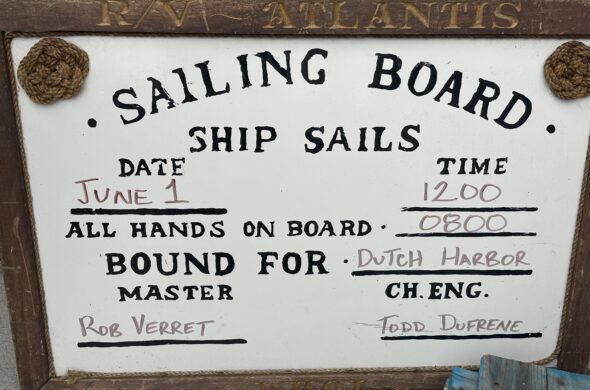 R/V ATLANTIS
• SAILING BOARD •
SHIP SAILS
DATE TIME
JUNE 1 1200
ALL HANDS ON BOARD • 0800
BOUND FOR • DUTCH HARBOR
MASTER CH. ENG.
ROB VERRET TODD DUFRENE